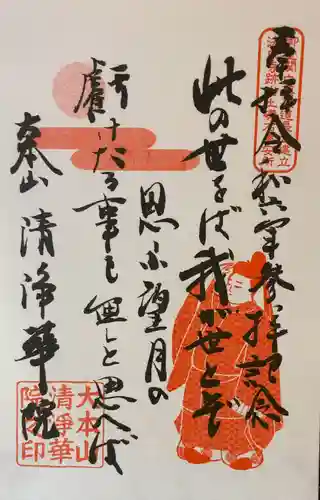 奉拝 令和六年参拝記念
此の世をば我が世とぞ
思ふ望月の
虧けたる事も無しと思へば
大本山 清浄華院
大本山
清浄華
院之印